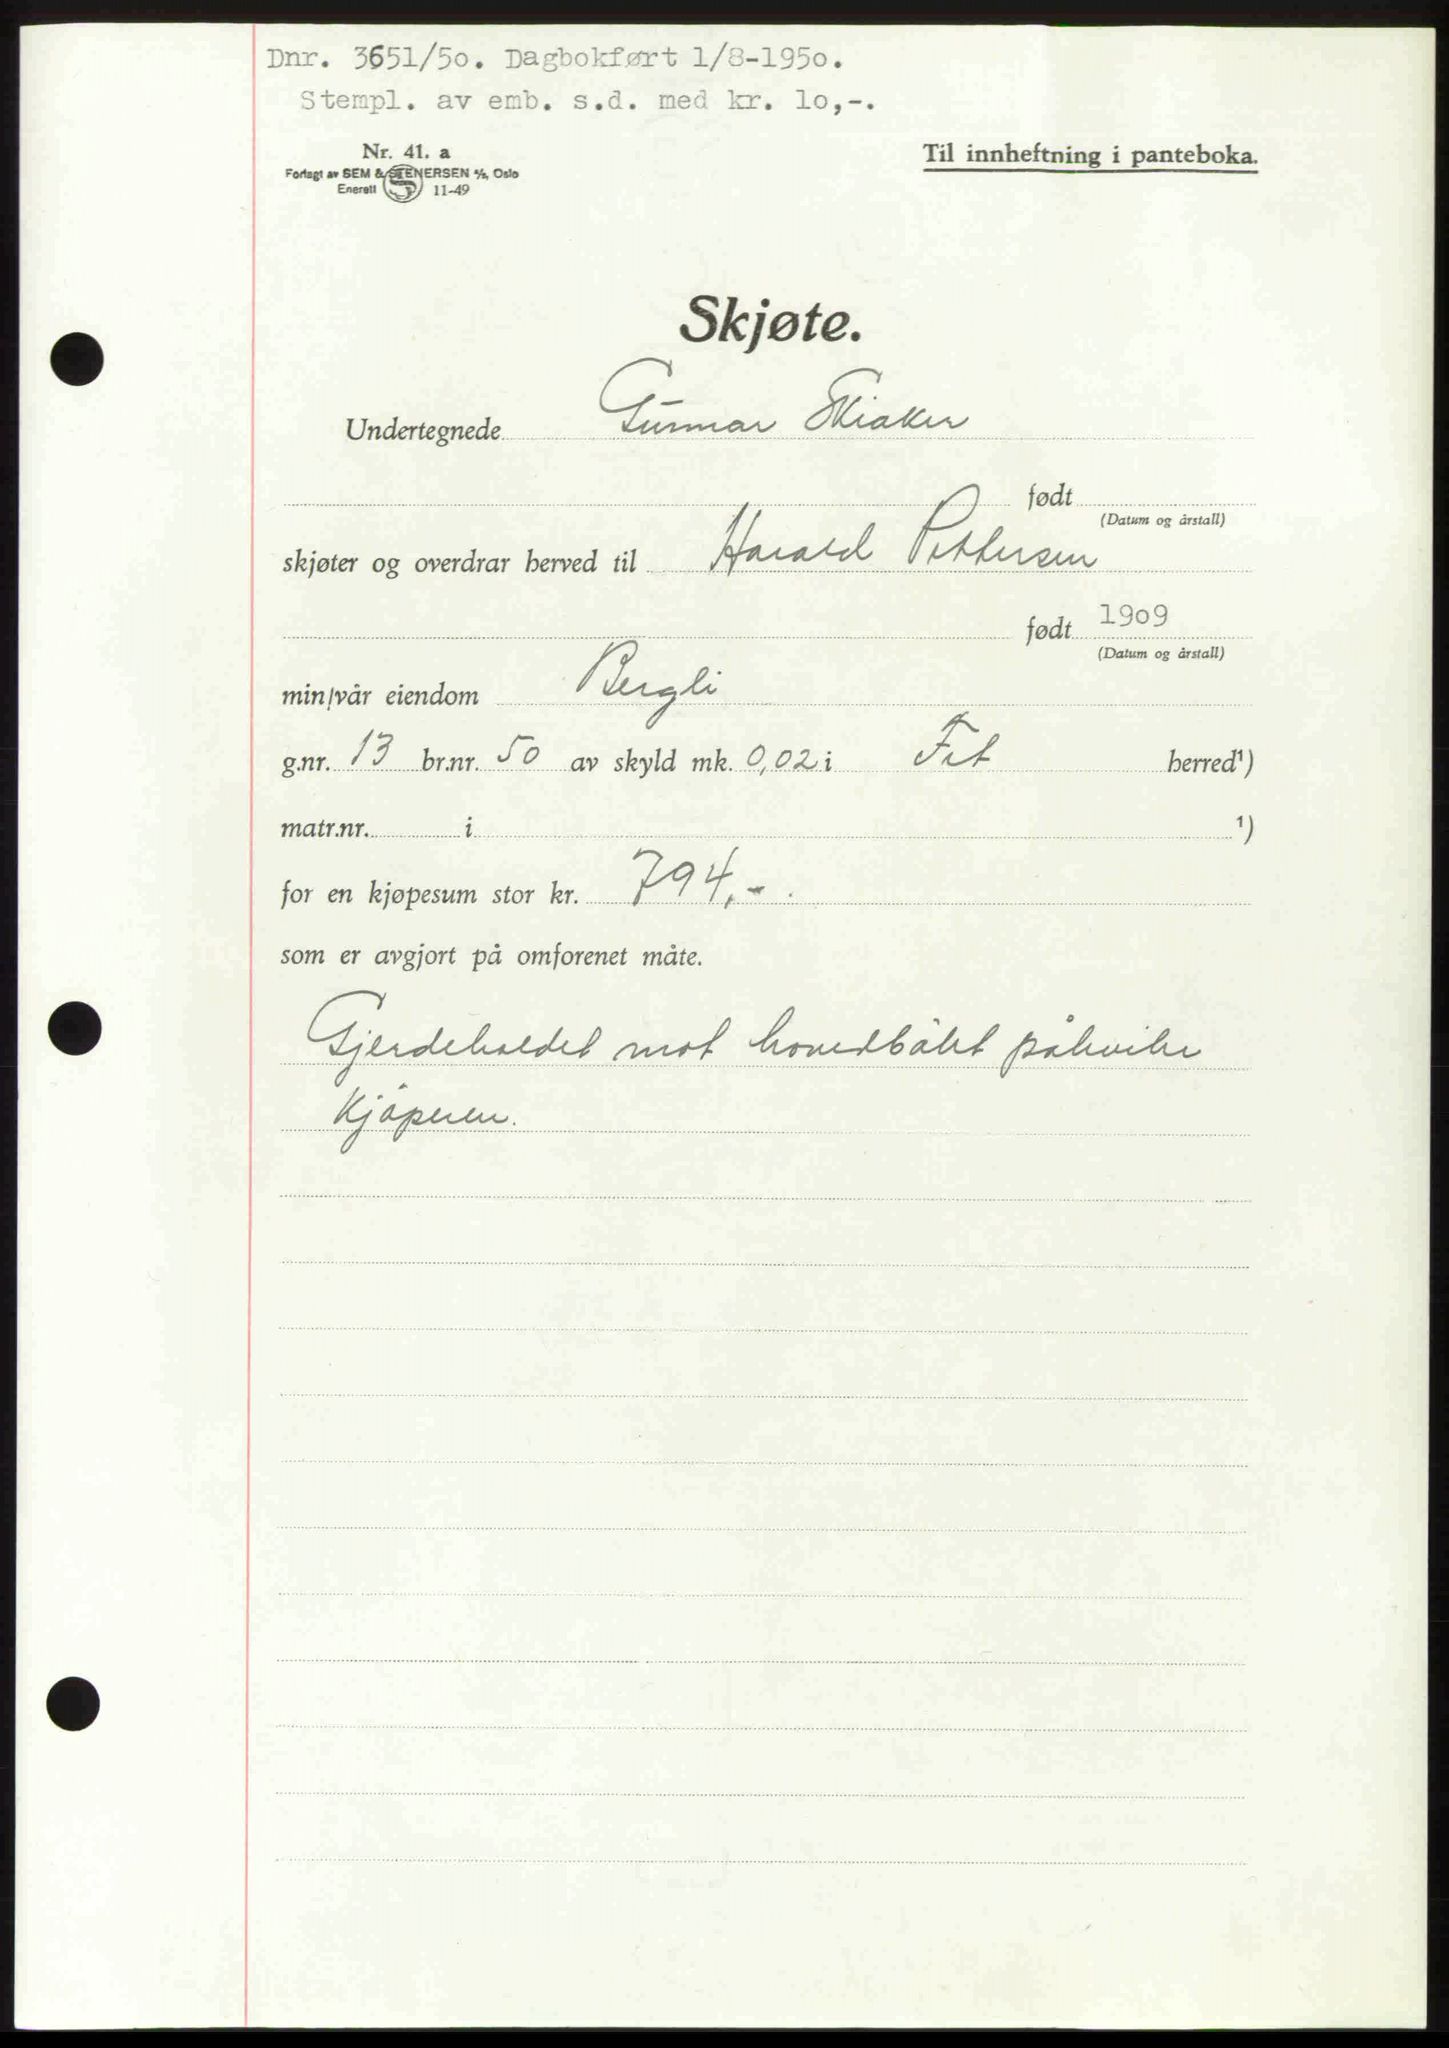 Dnr. 3651/50. Dagbokført 1/8-1950.
Stempl. av emb. s.d. med kr. 10,-.
Nr. 41. a
Forlagt av SEM & STENERSEN A/S, Oslo
Enerett 11-49
Til innheftning i panteboka.
Skjøte.
Undertegnede Gunnar Skiaker
født
(Datum og årstall)
skjøter og overdrar herved til Harald Pettersen
født 1909
(Datum og årstall)
min/vår eiendom Bergli
g.nr. 13 br.nr. 50 av skyld mk. 0,02 i Fet herred¹)
matr.nr. i ¹)
for en kjøpesum stor kr. 794,-.
som er avgjort på omforenet måte.
Gjerdeholdet mot hovedbølet påhviler
kjøperen.